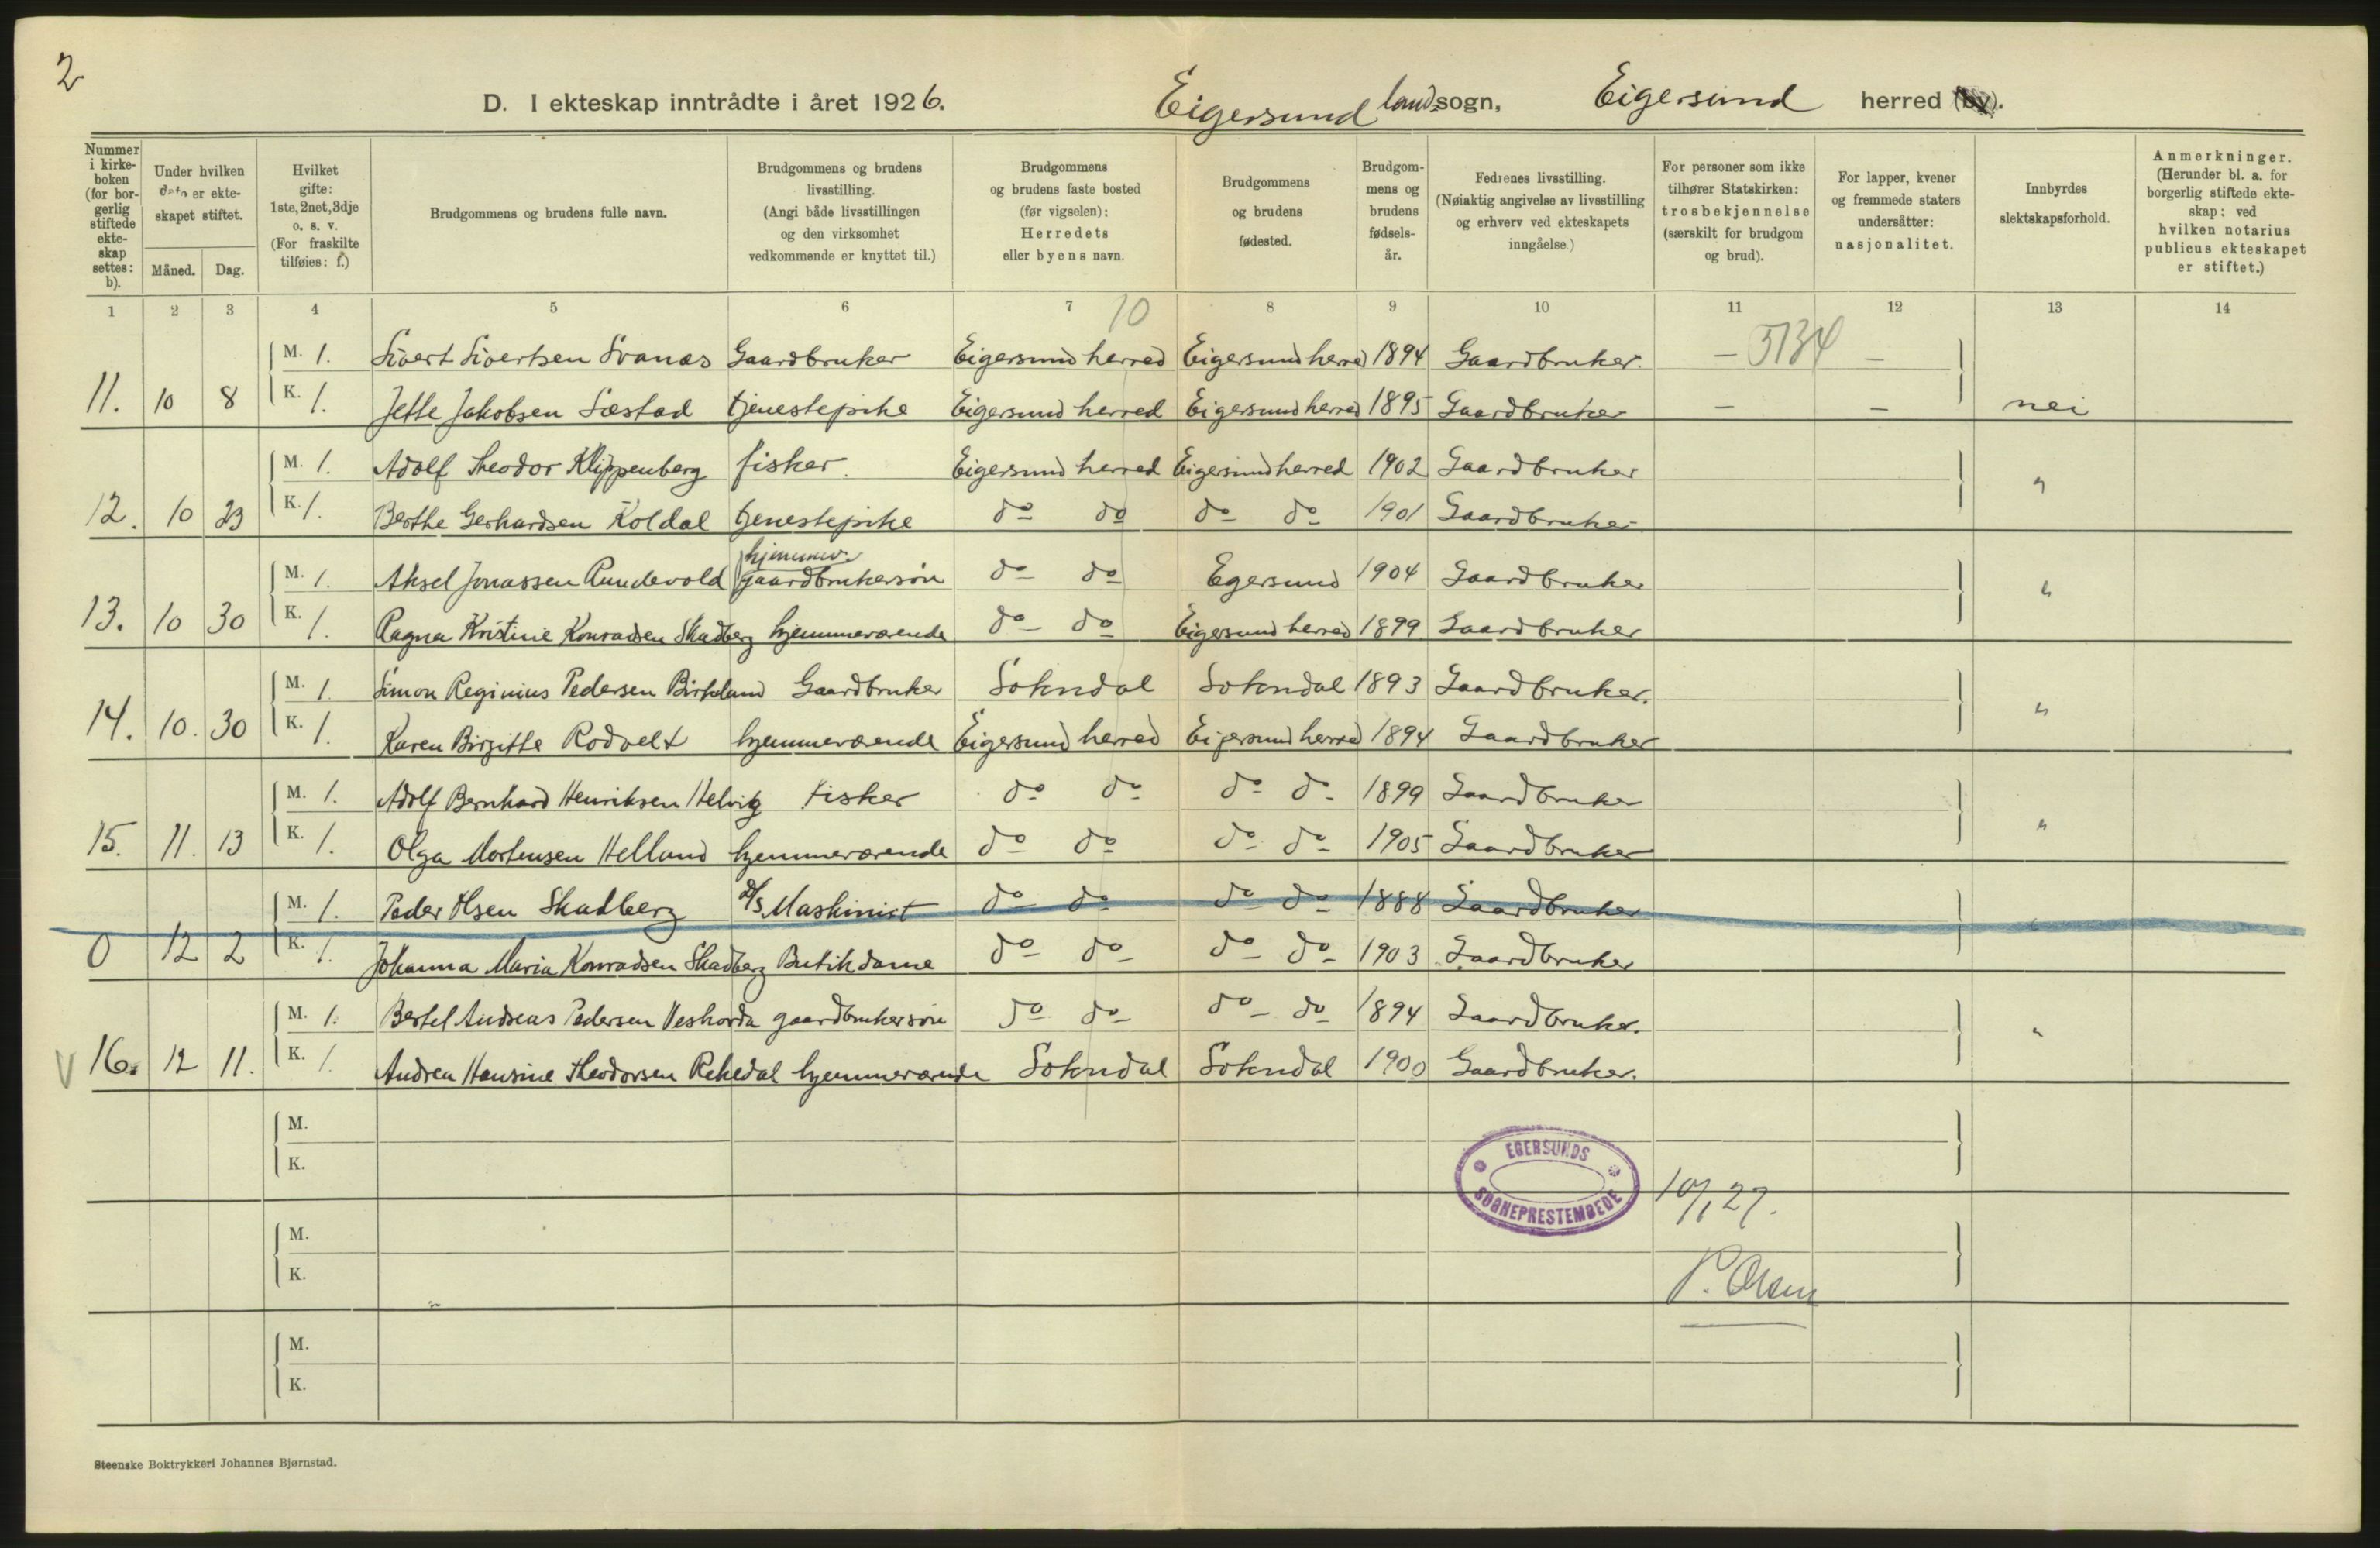 2
D. I ekteskap inntrådte i året 1926. Eigersund landssogn, Eigersund herred (by).
Nummer i kirke-boken (for bor-gerlig stiftede ekte-skap settes: b).
Under hvilken dato er ekte-skapet stiftet.
Måned. Dag.
Hvilket gifte: 1ste, 2net, 3dje o. s. v. (For fraskilte tilføies: f.)
Brudgommens og brudens fulle navn.
Brudgommens og brudens livsstilling. (Angi både livsstillingen og den virksomhet vedkommende er knyttet til.)
Brudgommens og brudens faste bosted (før vigselen): Herredets eller byens navn.
Brudgommens og brudens fødested.
Brudgom-mens og brudens fødsels-år.
Fedrenes livsstilling. (Nøiaktig angivelse av livsstilling og erhverv ved ekteskapets inngåelse.)
For personer som ikke tilhører Statskirken: trosbekjennelse (særskilt for brudgom og brud).
For lapper, kvener og fremmede staters undersåtter: nasjonalitet.
Innbyrdes slektskapsforhold.
Anmerkninger. (Herunder bl. a. for borgerlig stiftede ekte-skap: ved hvilken notarius publicus ekteskapet er stiftet.)
1 2 3 4 5 6 7 8 9 10 11 12 13 14
10
M. 1. Sivert Sivertsen Svanæs Gaardbruker Eigersund herred Eigersund herred 1894 Gaardbruker. – 5134 –
11. 10 8 K. 1. Jette Jakobsen Sæstad tjenestepike Eigersund herred Eigersund herred 1895 Gaardbruker – – nei
M. 1. Adolf Theodor Klippenberg fisker. Eigersund herred Eigersund herred 1902 Gaardbruker
12. 10 23 K. 1. Berthe Gerhardsen Koldal tjenestepike do do do do 1901 Gaardbruker "
hjemmev.
M. 1. Aksel Jonassen Rundevold gaardbrukersøn do do Egersund 1904 Gaardbruker
13. 10 30 K. 1. Ragna Kristine Konradsen Skadberg hjemmeværende do do Eigersund herred 1899 Gaardbruker "
M. 1. Simon Reginius Pedersen Birkeland Gaardbruker Sokndal Sokndal 1893 Gaardbruker.
14. 10. 30 K. 1. Karen Birgitte Rodvelt hjemmeværende Eigersund herred Eigersund herred 1894 Gaardbruker "
M. 1. Adolf Bernhard Henriksen Helvig Fisker do do do do 1899 Gaardbruker
15. 11. 13 K. 1. Olga Mortensen Helland hjemmeværende do do do do 1905 Gaardbruker "
M. 1. Peder Olsen Skadberg D/S Maskinist do do do do 1888 Gaardbruker
0 12 2 K. 1. Johanna Maria Konradsen Skadberg Butikdame do do do do 1903 Gaardbruker
M. 1. Bertel Andreas Pedersen Veshovda gaardbrukersøn do do do do 1894 Gaardbruker.
V 16. 12 11. K. 1. Andrea Hansine Theodorsen Rekedal hjemmeværende Sokndal Sokndal 1900 Gaardbruker. "
M.
K.
EGERSUNDS SOGNEPRESTEMBEDE
10/1 27.
M.
K.
P. Olsen
M.
K.
Steenske Boktrykkeri Johannes Bjørnstad.